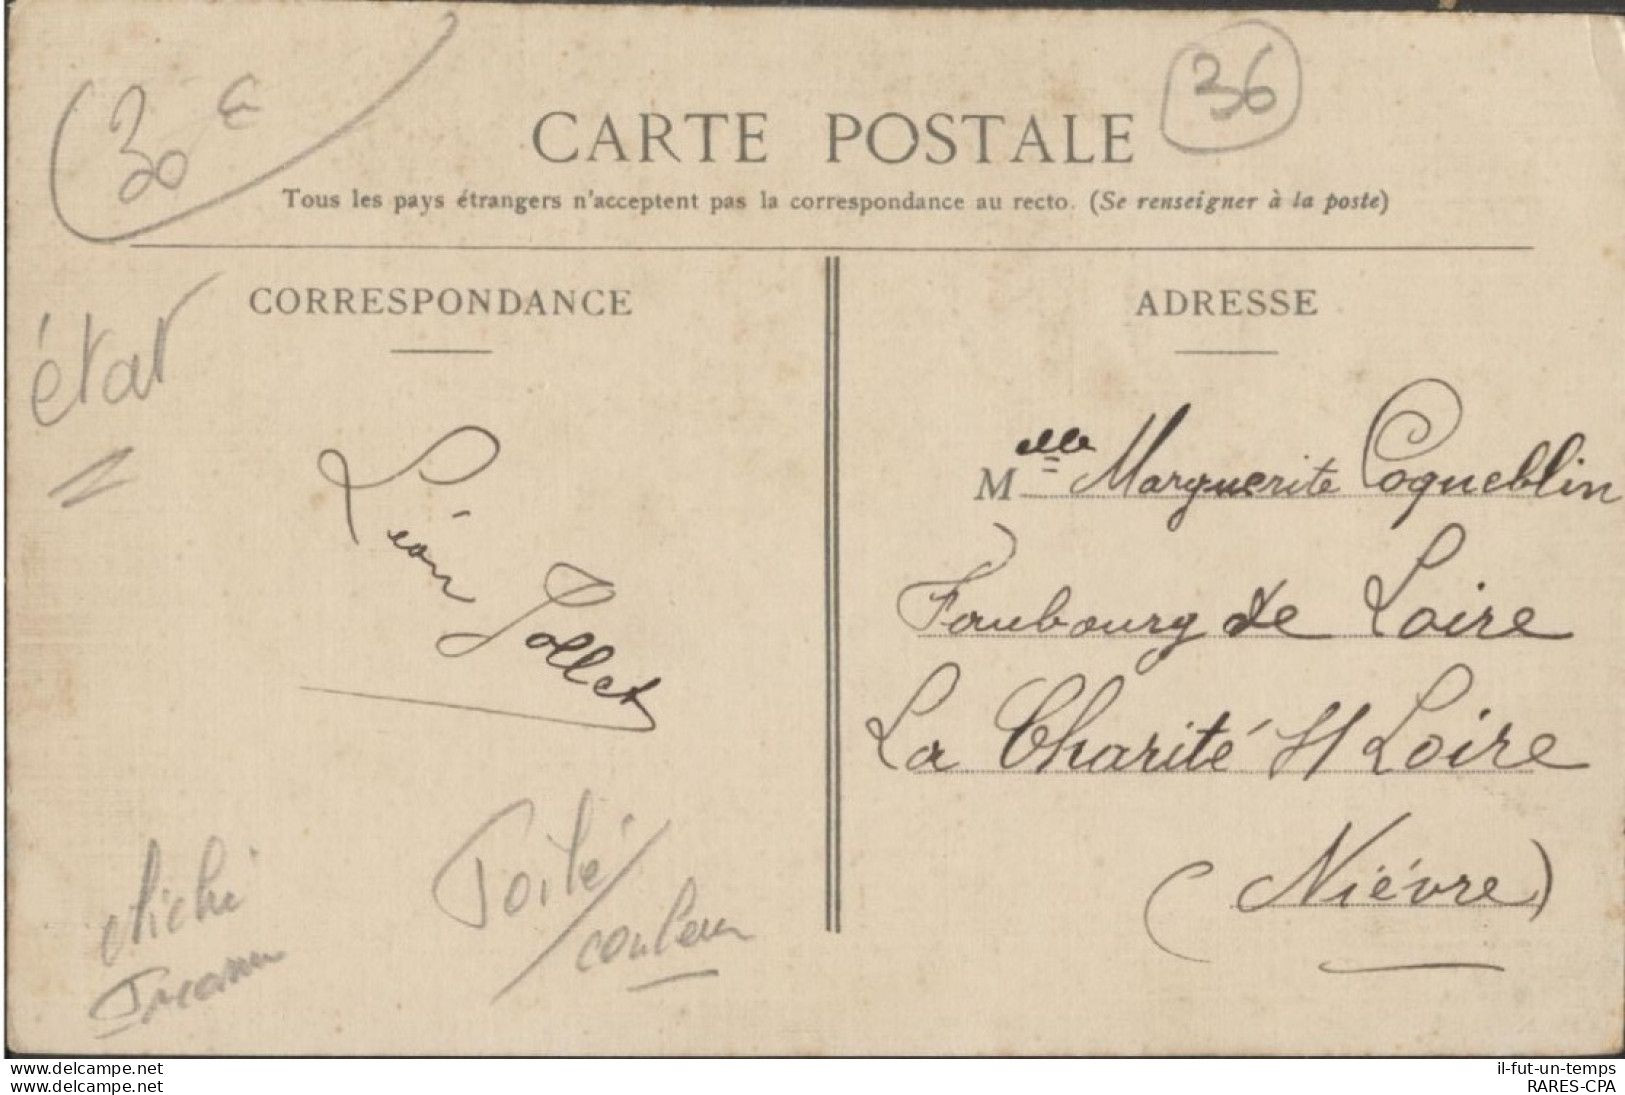 30 €
36
CARTE POSTALE
Tous les pays étrangers n'acceptent pas la correspondance au recto. (Se renseigner à la poste)
CORRESPONDANCE
état
Léon Jollet
cliché
Toilé / couleur
ADRESSE
Melle Marguerite Coqueblin
Faubourg de Loire
La Charité s/ Loire
(Nièvre)
www.delcampe.net
delcampe.net
il-fut-un-temps
RARES-CPA